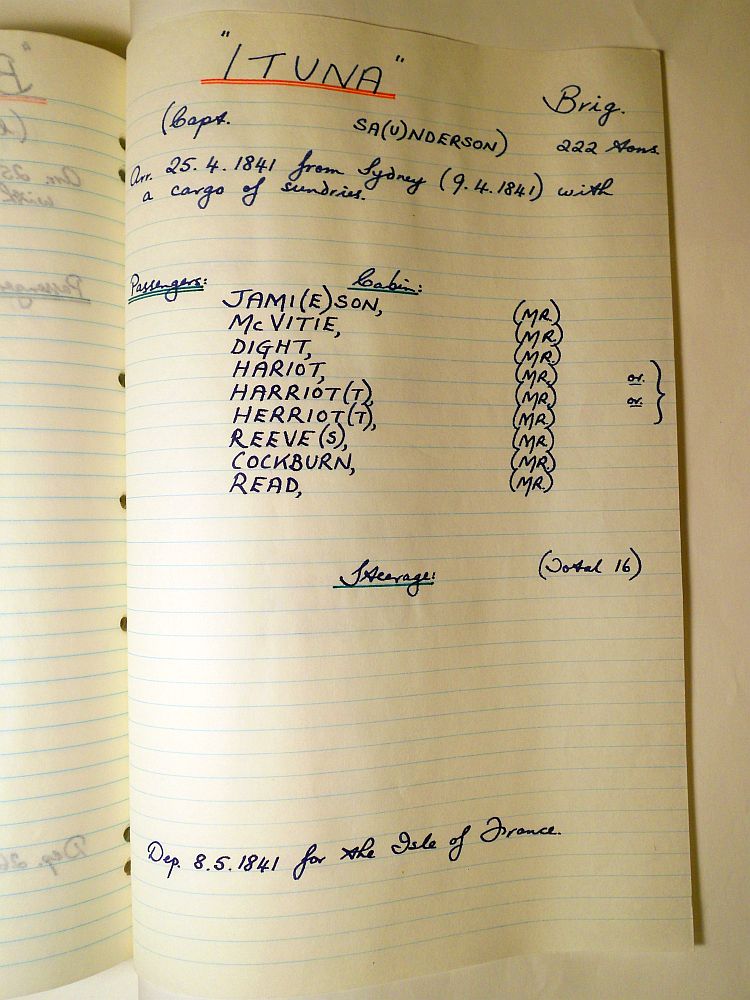 "ITUNA"
Brig.
(Capt. SA(U)NDERSON) 222 tons
Arr. 25.4.1841 from Sydney (9.4.1841) with
a cargo of sundries.
Passengers: Cabin:
JAMI(E)SON, (MR.)
McVITIE, (MR.)
DIGHT, (MR.)
HARIOT, (MR.) or.
HARRIOT(T), (MR.) or.
HERRIOT(T), (MR.)
REEVE(S), (MR.)
COCKBURN, (MR.)
READ, (MR.)
Steerage: (Total 16)
Dep. 8.5.1841 for the Isle of France.